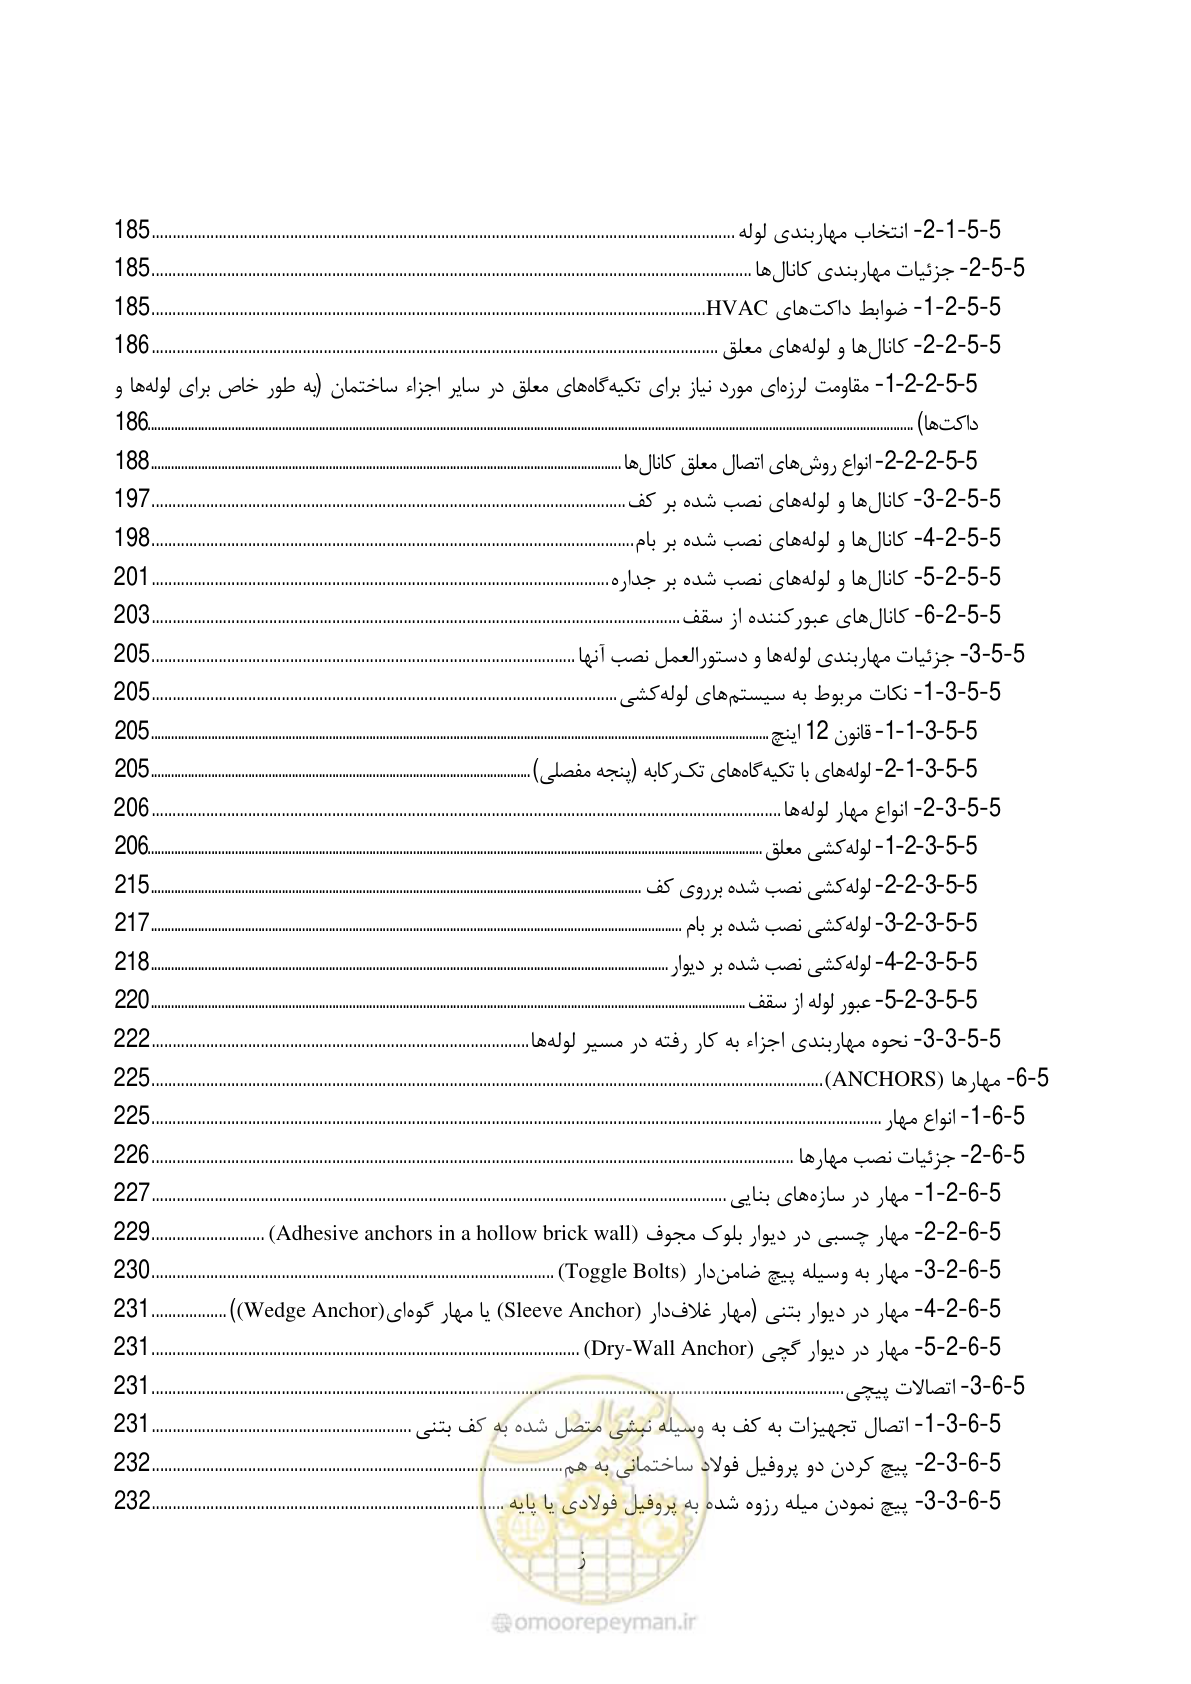 5-5-1-2- انتخاب مهاربندی لوله ........ 185
5-5-2- جزئیات مهاربندی کانال‌ها ........ 185
5-5-2-1- ضوابط داکت‌های HVAC ........ 185
5-5-2-2- کانال‌ها و لوله‌های معلق ........ 186
5-5-2-2-1- مقاومت لرزه‌ای مورد نیاز برای تکیه‌گاه‌های معلق در سایر اجزاء ساختمان (به طور خاص برای لوله‌ها و
داکت‌ها) ........ 186
5-5-2-2-2- انواع روش‌های اتصال معلق کانال‌ها ........ 188
5-5-2-3- کانال‌ها و لوله‌های نصب شده بر کف ........ 197
5-5-2-4- کانال‌ها و لوله‌های نصب شده بر بام ........ 198
5-5-2-5- کانال‌ها و لوله‌های نصب شده بر جداره ........ 201
5-5-2-6- کانال‌های عبورکننده از سقف ........ 203
5-5-3- جزئیات مهاربندی لوله‌ها و دستورالعمل نصب آنها ........ 205
5-5-3-1- نکات مربوط به سیستم‌های لوله‌کشی ........ 205
5-5-3-1-1- قانون 12 اینچ ........ 205
5-5-3-1-2- لوله‌های با تکیه‌گاه‌های تک‌رکابه (پنجه مفصلی) ........ 205
5-5-3-2- انواع مهار لوله‌ها ........ 206
5-5-3-2-1- لوله‌کشی معلق ........ 206
5-5-3-2-2- لوله‌کشی نصب شده برروی کف ........ 215
5-5-3-2-3- لوله‌کشی نصب شده بر بام ........ 217
5-5-3-2-4- لوله‌کشی نصب شده بر دیوار ........ 218
5-5-3-2-5- عبور لوله از سقف ........ 220
5-5-3-3- نحوه مهاربندی اجزاء به کار رفته در مسیر لوله‌ها ........ 222
5-6- مهارها (ANCHORS) ........ 225
5-6-1- انواع مهار ........ 225
5-6-2- جزئیات نصب مهارها ........ 226
5-6-2-1- مهار در سازه‌های بنایی ........ 227
5-6-2-2- مهار چسبی در دیوار بلوک مجوف (Adhesive anchors in a hollow brick wall) ........ 229
5-6-2-3- مهار به وسیله پیچ ضامن‌دار (Toggle Bolts) ........ 230
5-6-2-4- مهار در دیوار بتنی (مهار غلاف‌دار (Sleeve Anchor) یا مهار گوه‌ای(Wedge Anchor)) ........ 231
5-6-2-5- مهار در دیوار گچی (Dry-Wall Anchor) ........ 231
5-6-3- اتصالات پیچی ........ 231
5-6-3-1- اتصال تجهیزات به کف به وسیله نبشی متصل شده به کف بتنی ........ 231
5-6-3-2- پیچ کردن دو پروفیل فولاد ساختمانی به هم ........ 232
5-6-3-3- پیچ نمودن میله رزوه شده به پروفیل فولادی یا پایه ........ 232
امور پیمان
ز
@omoorepeyman.ir